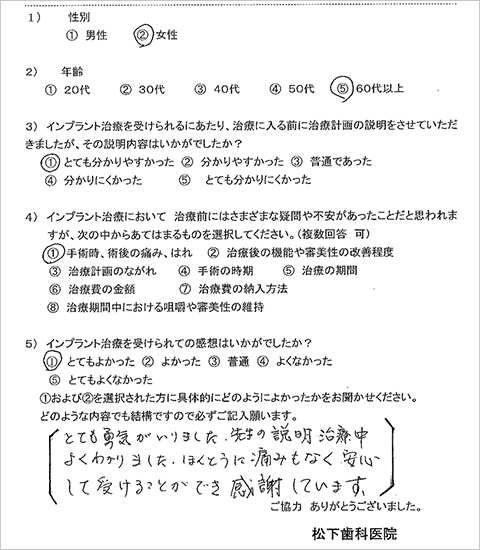 1） 性別
① 男性 ② 女性
2） 年齢
① 20代 ② 30代 ③ 40代 ④ 50代 ⑤ 60代以上
3） インプラント治療を受けられるにあたり、治療に入る前に治療計画の説明をさせていただ
きましたが、その説明内容はいかがでしたか？
① とても分かりやすかった ② 分かりやすかった ③ 普通であった
④ 分かりにくかった ⑤ とても分かりにくかった
4） インプラント治療において 治療前にはさまざまな疑問や不安があったことだと思われま
すが、次の中からあてはまるものを選択してください。（複数回答 可）
① 手術時、術後の痛み、はれ ② 治療後の機能や審美性の改善程度
③ 治療計画のながれ ④ 手術の時期 ⑤ 治療の期間
⑥ 治療費の金額 ⑦ 治療費の納入方法
⑧ 治療期間中における咀嚼や審美性の維持
5） インプラント治療を受けられての感想はいかがでしたか？
① とてもよかった ② よかった ③ 普通 ④ よくなかった
⑤ とてもよくなかった
①および②を選択された方に具体的にどのようによかったかをお聞かせください。
どのような内容でも結構ですので必ずご記入願います。
とても勇気がいりました。先生の説明治療中
よくわかりました。ほんとうに痛みもなく安心
して受けることができ感謝しています。
ご協力 ありがとうございました。
松下歯科医院